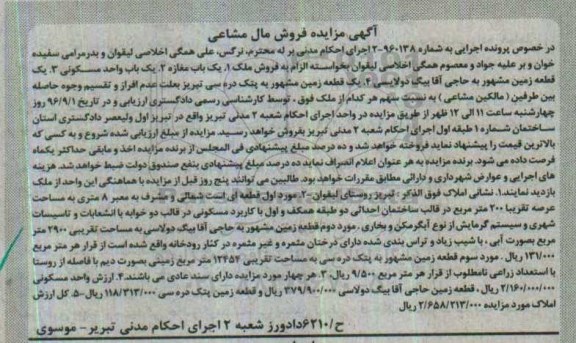 آگهی مزایده فروش مال مشاعی
در خصوص پرونده اجرایی به شماره ۲-۹۶۰۱۳۸ اجرای احکام مدنی بر له محترم، نرگس، علی همگی اخلاصی لیقوان و بدرمرامی سفیده
خوان و بر علیه جواد و معصوم همگی اخلاصی لیقوان بخواسته الزام به فروش ملک ۱. یک باب مغازه ۲. یک باب واحد مسکونی ۳. یک
قطعه زمین مشهور به حاجی آقا بیگ دولاسی ۴. یک قطعه زمین مشهور به پتک دره سی تبریز بعلت عدم افراز و تقسیم وجوه حاصله
بین طرفین (مالکین مشاعی) به نسبت سهم هر کدام از ملک فوق، توسط کارشناسی رسمی دادگستری ارزیابی و در تاریخ ۹۶/۹/۱ روز
چهارشنبه ساعت ۱۱ الی ۱۲ ظهر از طریق مزایده در واحد اجرای احکام شعبه ۲ مدنی تبریز واقع در تبریز اول ولیعصر دادگستری استان
ساختمان شماره ۱ طبقه اول اجرای احکام شعبه ۲ مدنی تبریز بفروش خواهد رسید. مزایده از مبلغ ارزیابی شده شروع و به کسی که
بالاترین قیمت را پیشنهاد نماید فروخته خواهد شد و ده درصد مبلغ پیشنهادی فی المجلس از برنده مزایده اخذ و مابقی حداکثر یکماه
فرصت داده می شود. برنده مزایده به هر عنوان اعلام انصراف نماید ده درصد مبلغ پیشنهادی بنفع صندوق دولت ضبط خواهد شد. هزینه
های اجرایی و عوارض شهرداری و دارائی مطابق مقررات خواهد بود. طالبین می توانند پنج روز قبل از مزایده با هماهنگی این واحد از ملک
بازدید نمایند: ۱. نشانی املاک فوق الذکر: تبریز روستای لیقوان -۲. مورد اول قطعه ای است شمالی و مشرف به معبر ۸ متری به مساحت
عرصه تقریبا ۲۰۰ متر مربع در قالب ساختمان احداثی دو طبقه همکف و اول با کاربرد مسکونی در قالب دو خوابه با انشعابات و تاسیسات
شهری و سیستم گرمایش از نوع آبگرمکن و بخاری. مورد دوم قطعه زمین مشهور به حاجی آقا بیگ دولاسی به مساحت تقریبی ۲۹۰۰ متر
مربع بصورت آبی، با شیب زیاد و تراس بندی شده دارای درختان مثمره و غیر مثمره در کنار رودخانه واقع شده است از قرار هر متر مربع
۱۳۱/۰۰۰ ریال. مورد سوم قطعه زمین مشهور به پتک دره سی به مساحت تقریبی ۱۲۴۵۴ متر مربع زمینی بصورت دیم با فاصله از روستا
با استعداد زراعی نامطلوب از قرار هر متر مربع ۹/۵۰۰ ریال. ۳. هر چهار مورد مزایده دارای سند عادی می باشند. ۴. ارزش واحد مسکونی
۲/۱۶۰/۰۰۰/۰۰۰ ریال، قطعه زمین حاجی آقا بیگ دولاسی ۳۷۹/۹۰۰/۰۰۰ ریال و قطعه زمین پتک دره سی ۱۱۸/۳۱۳/۰۰۰ ریال-۵. کل ارزش
املاک مورد مزایده ۲/۶۵۸/۲۱۳/۰۰۰ ریال
ح/۶۲۱۰ دادورز شعبه ۲ اجرای احکام مدنی تبریز- موسوی